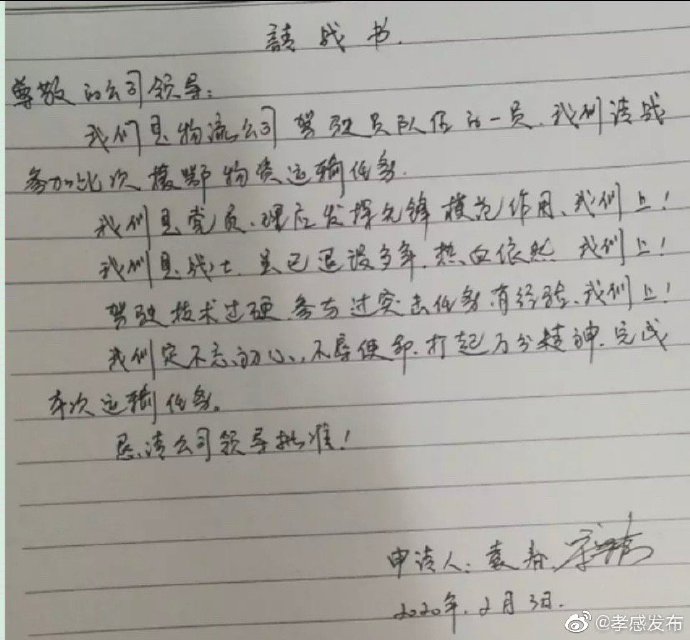 請战书.
尊敬的公司领导：
我们是物流公司驾驶员队伍的一员，我们请战
参加此次援鄂物资运输任务.
我们是党员，理应发挥先锋模范作用、我们上！
我们是战士，虽已退役多年，热血依然，我们上！
驾驶技术过硬，参与过突击任务，有经验，我们上！
我们定不忘初心，不辱使命，打起万分精神，完成
本次运输任务。
恳请公司领导批准！
申请人：袁春
2020年.2月3日.
@孝感发布